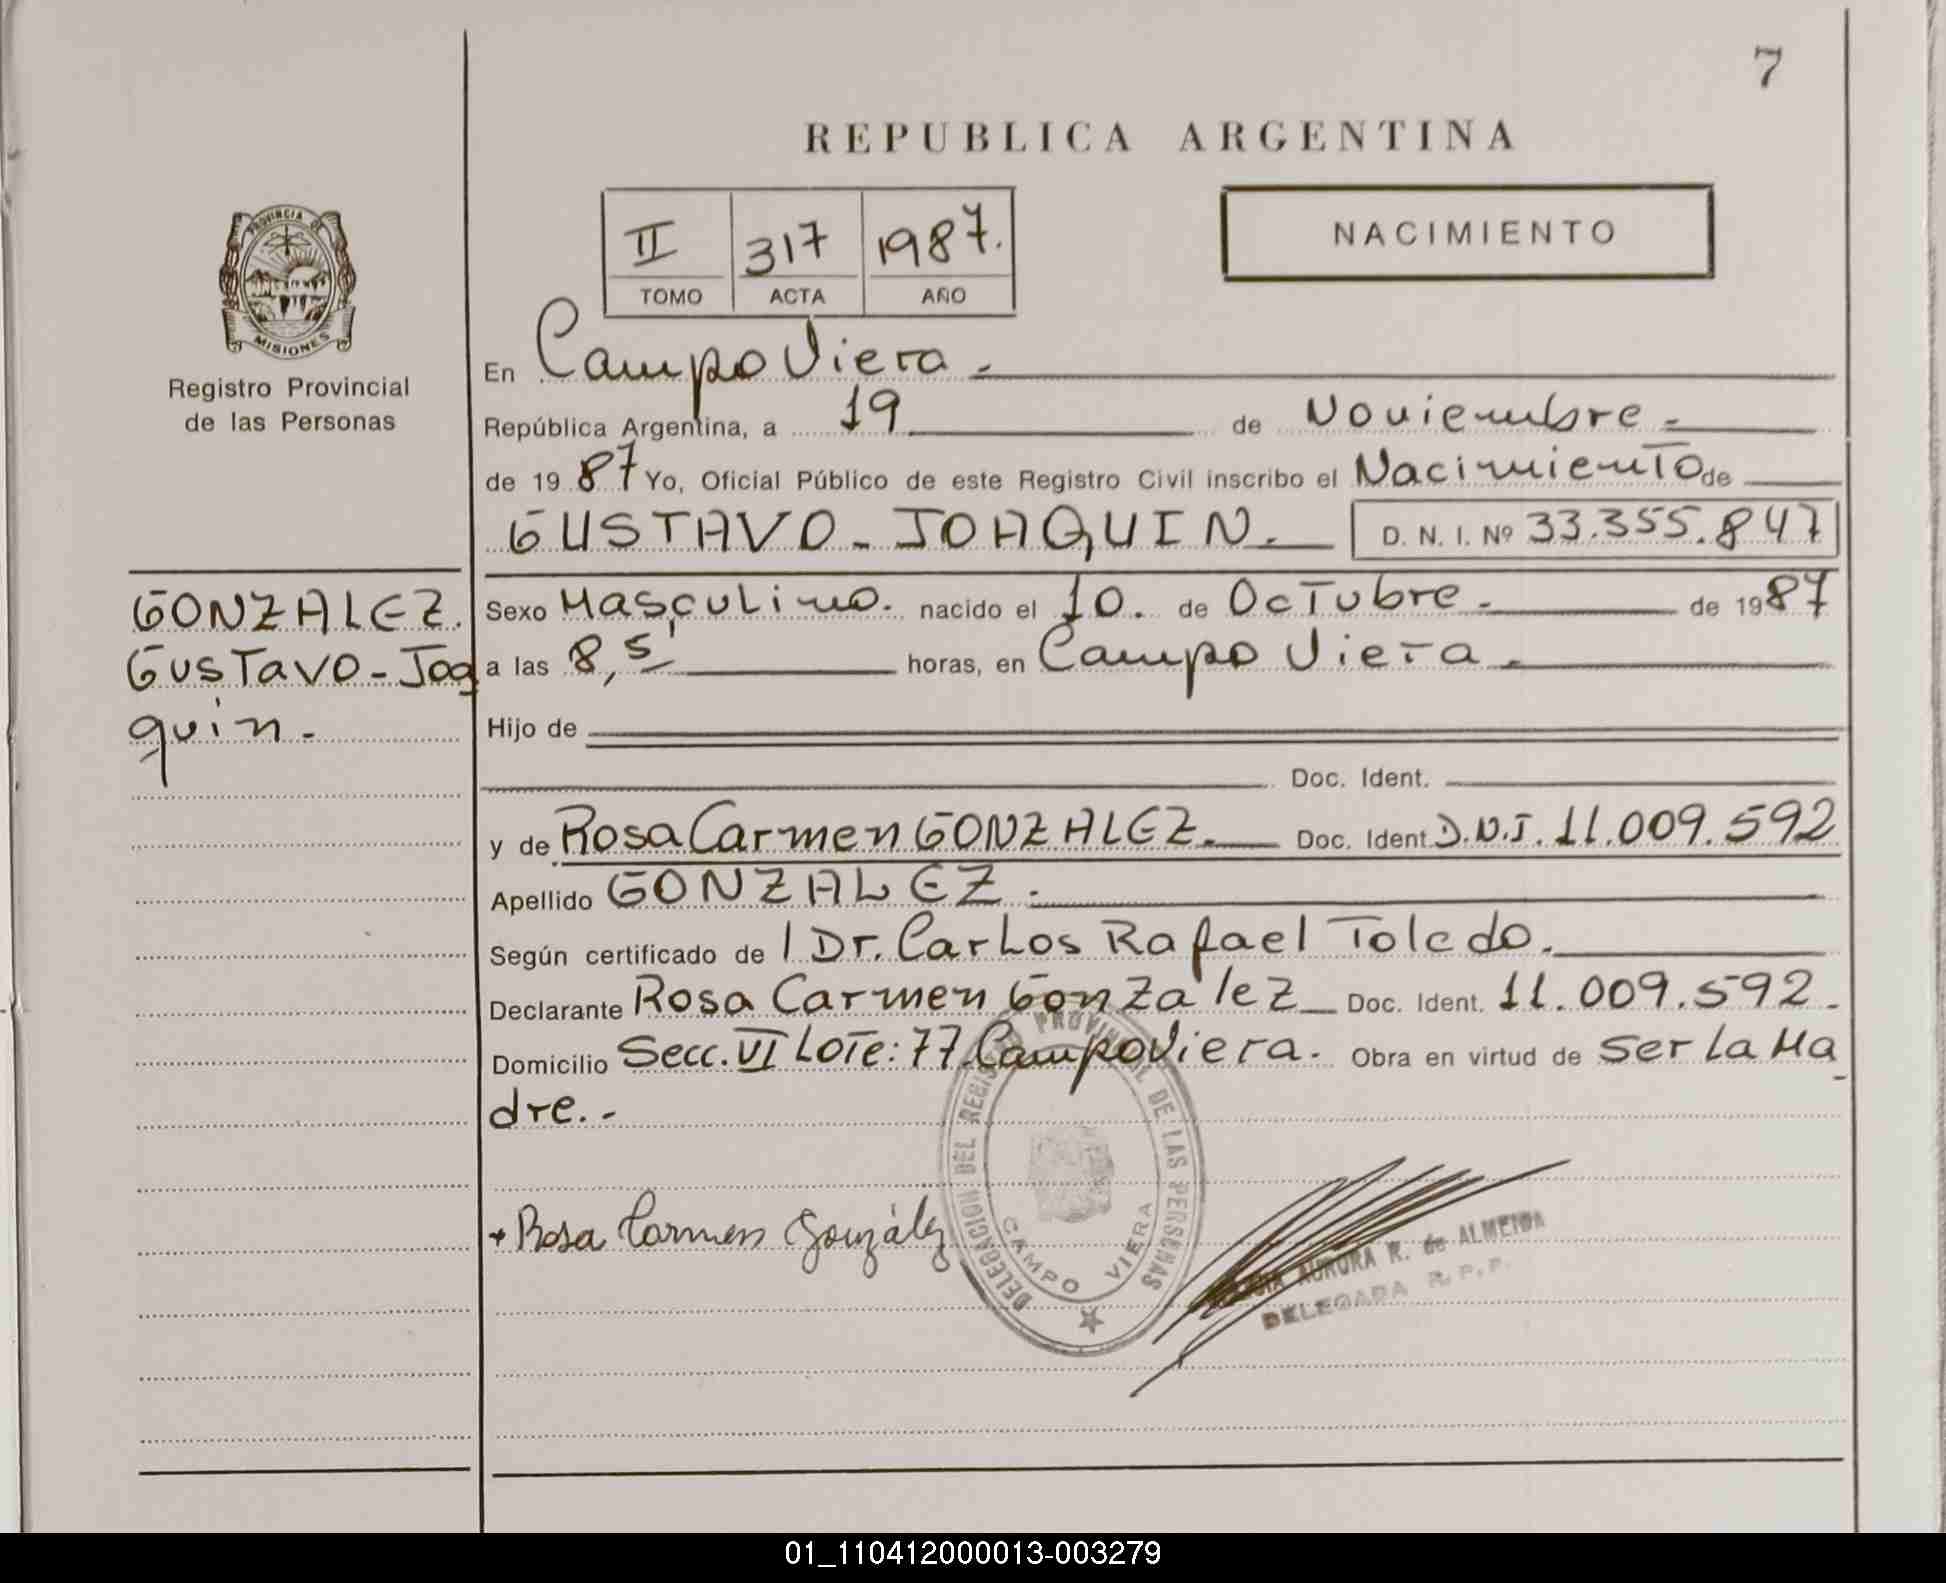 7
REPUBLICA ARGENTINA
II 317 1987.
TOMO ACTA AÑO
NACIMIENTO
PROVINCIA DE
MISIONES
Registro Provincial
de las Personas
En Campo Viera.-
República Argentina, a 19 de Noviembre.-
de 1987 Yo, Oficial Público de este Registro Civil inscribo el Nacimiento de
GUSTAVO-JOAQUIN.- D. N. I. Nº 33.355.847
GONZALEZ.
Gustavo-Joa
quin.-
Sexo Masculino. nacido el 10. de Octubre.- de 1987
a las 8,5' horas, en Campo Viera.-
Hijo de
Doc. Ident.
y de Rosa Carmen GONZALEZ.- Doc. Ident. D.N.I. 11.009.592
Apellido GONZALEZ.-
Según certificado de l Dr. Carlos Rafael Toledo.-
Declarante Rosa Carmen Gonzalez- Doc. Ident. 11.009.592.-
Domicilio Secc. VI Lote: 77. Campo Viera.- Obra en virtud de Ser La Ma-
dre.-
Rosa Carmen González
DELEGACION DEL REGISTRO PROVINCIAL DE LAS PERSONAS
CAMPO VIERA
AURORA R. de ALMEIDA
DELEGADA R.P.P.
01_110412000013-003279